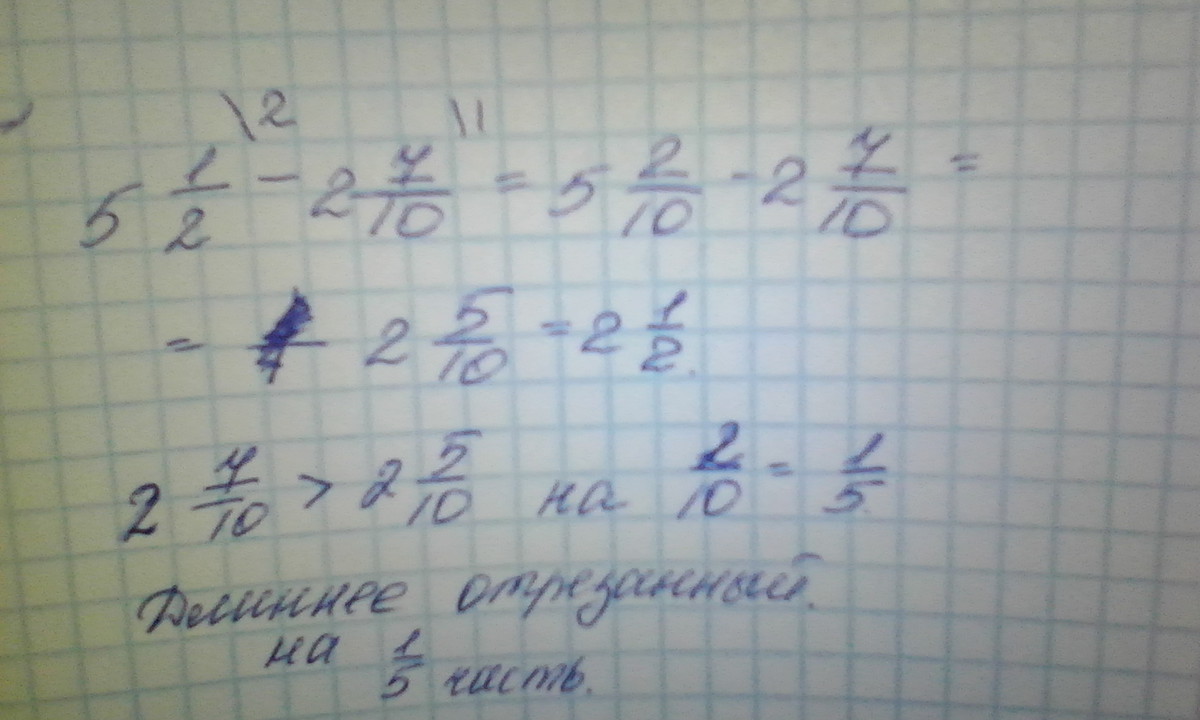 \2 \1
5 1/2 - 2 7/10 = 5 2/10 - 2 7/10 =
= 2 5/10 = 2 1/2.
2 7/10 > 2 5/10 на 2/10 = 1/5.
Длиннее отрезанный.
на 1/5 часть.